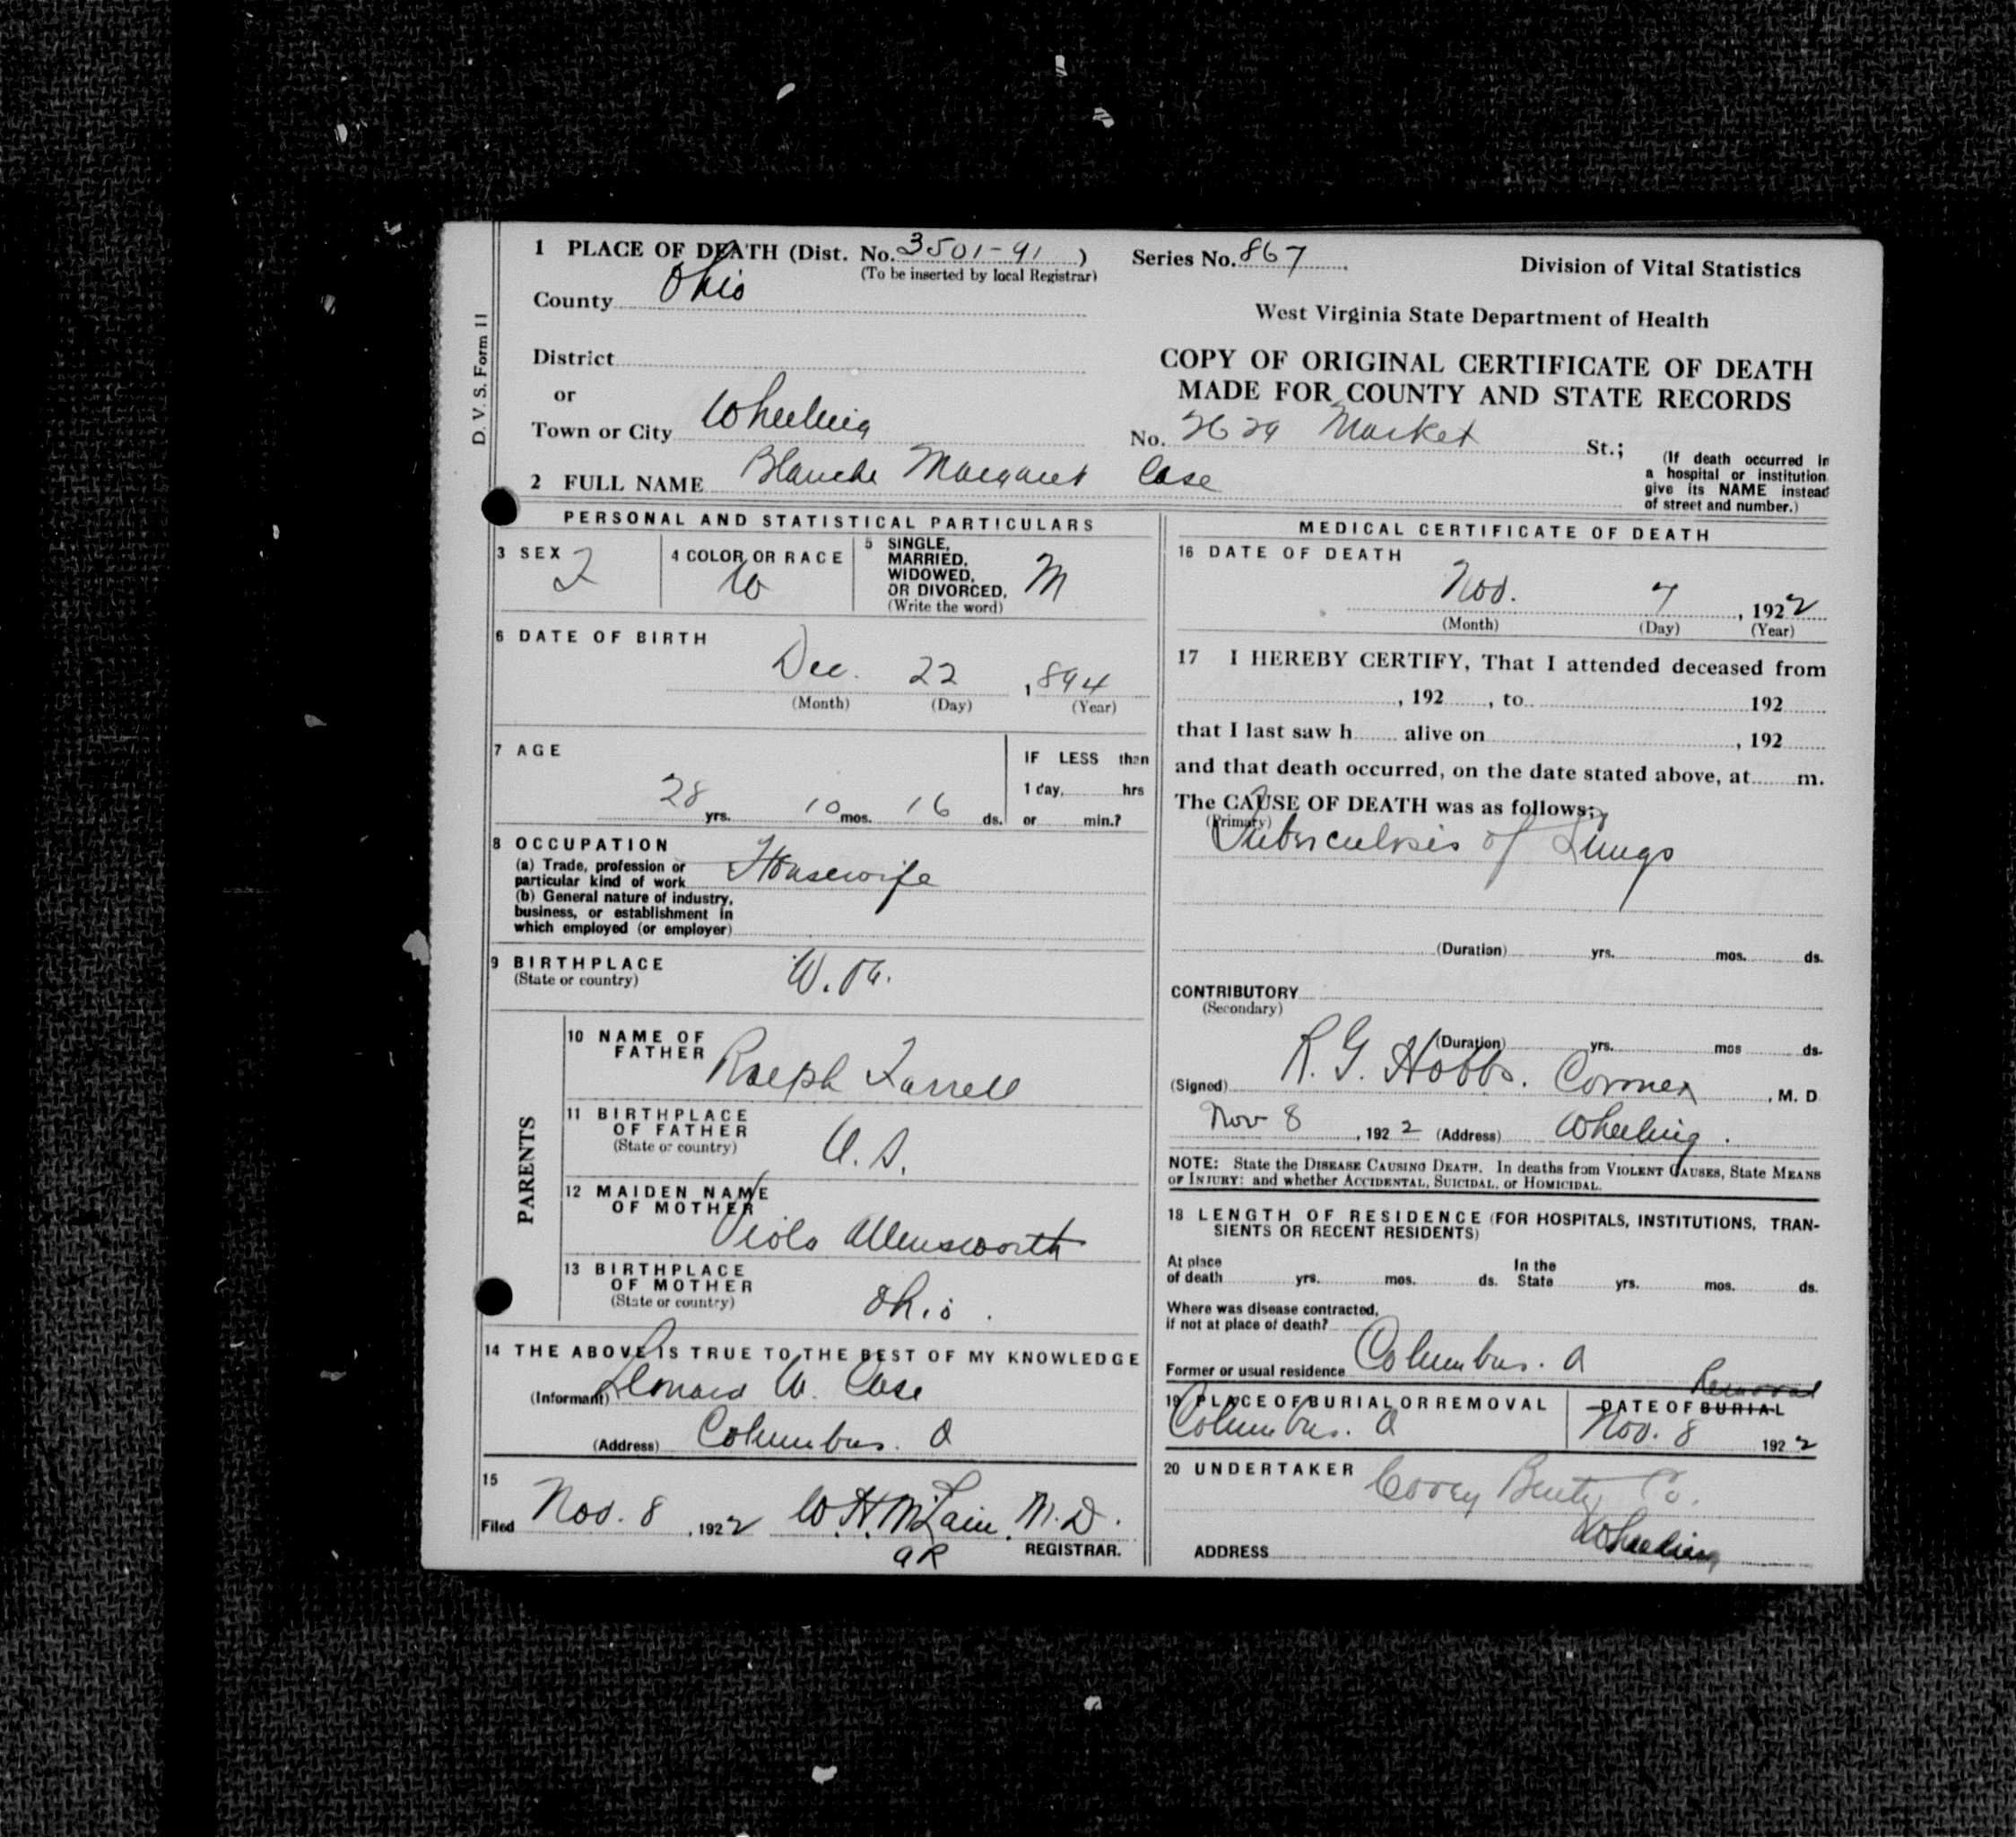 D. V. S. Form 11
1 PLACE OF DEATH (Dist. No. 3501-91 )
(To be inserted by local Registrar)
County Ohio
District
or
Town or City Wheeling
Series No. 867
Division of Vital Statistics
West Virginia State Department of Health
COPY OF ORIGINAL CERTIFICATE OF DEATH
MADE FOR COUNTY AND STATE RECORDS
No. 2629 Market St.;
(If death occurred in
a hospital or institution
give its NAME instead
of street and number.)
2 FULL NAME Blanche Margaret Case
PERSONAL AND STATISTICAL PARTICULARS
3 SEX F
4 COLOR OR RACE W
5 SINGLE,
MARRIED,
WIDOWED,
OR DIVORCED,
(Write the word)
M
6 DATE OF BIRTH
Dec. 22 , 894
(Month) (Day) (Year)
7 AGE
28 yrs. 10 mos. 16 ds.
IF LESS than
1 day, hrs
or min.?
8 OCCUPATION
(a) Trade, profession or
particular kind of work Housewife
(b) General nature of industry,
business, or establishment in
which employed (or employer)
9 BIRTHPLACE
(State or country)
W. Va.
PARENTS
10 NAME OF
FATHER Ralph Farrell
11 BIRTHPLACE
OF FATHER
(State or country) U. S.
12 MAIDEN NAME
OF MOTHER
Viola Allensworth
13 BIRTHPLACE
OF MOTHER
(State or country) Ohio.
14 THE ABOVE IS TRUE TO THE BEST OF MY KNOWLEDGE
(Informant) W. Case
(Address) Columbus. O
15
Filed Nov. 8 , 1922 W. H. McLain, M.D.
REGISTRAR.
MEDICAL CERTIFICATE OF DEATH
16 DATE OF DEATH
Nov. 7 , 1922
(Month) (Day) (Year)
17 I HEREBY CERTIFY, That I attended deceased from
, 192 , to 192
that I last saw h alive on , 192
and that death occurred, on the date stated above, at m.
The CAUSE OF DEATH was as follows:
(Primary)
Tuberculosis of Lungs
(Duration) yrs. mos. ds.
CONTRIBUTORY
(Secondary)
(Duration) yrs. mos ds.
(Signed) R. G. Hobbs. Coroner , M. D
Nov 8 , 1922 (Address) Wheeling.
NOTE: State the DISEASE CAUSING DEATH. In deaths from VIOLENT CAUSES, State MEANS
OF INJURY; and whether ACCIDENTAL, SUICIDAL, or HOMICIDAL.
18 LENGTH OF RESIDENCE (FOR HOSPITALS, INSTITUTIONS, TRAN-
SIENTS OR RECENT RESIDENTS)
At place
of death yrs. mos. ds.
In the
State yrs. mos. ds.
Where was disease contracted,
if not at place of death?
Former or usual residence Columbus. O
19 PLACE OF BURIAL OR REMOVAL
Columbus. O
Removal
DATE OF BURIAL
Nov. 8 1922
20 UNDERTAKER Co.
ADDRESS Wheeling